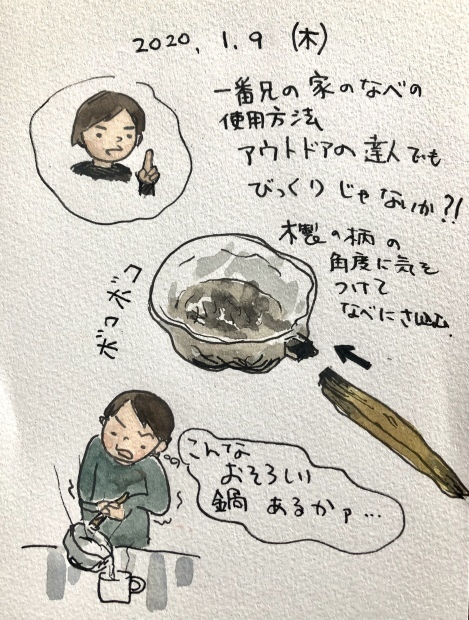 2020. 1. 9 (木)
一番兄の家のなべの
使用方法
アウトドアの達人でも
びっくりじゃないか?!
木製の柄の
角度に気を
つけて
なべにさし込む.
ボコボコ
こんな
おそろしい
鍋 あるかァ…